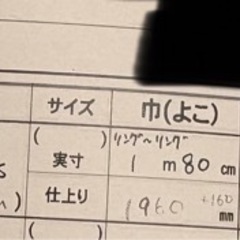 サイズ 巾(よこ)
( ) リング～リング
実寸 1 m 80 cm
仕上り 1960 +160 mm
(